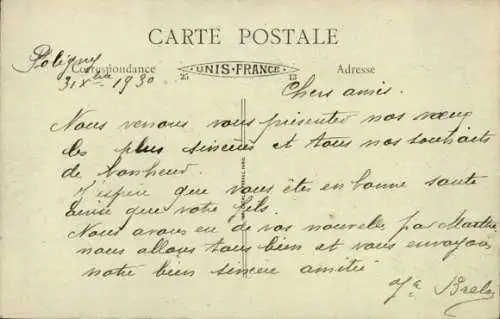 CARTE POSTALE
Poligny
Correspondance
UNIS-FRANCE
25
13
Adresse
31 Xbre 1930
Chers amis.
Nous venons vous présenter nos vœux
les plus sincères et tous nos souhaits
de bonheur.
J'espère que vous êtes en bonne santé
ainsi que votre fils.
Nous avons eu de vos nouvelles par Marthe
nous allons tous bien et vous envoyons
notre bien sincère amitié